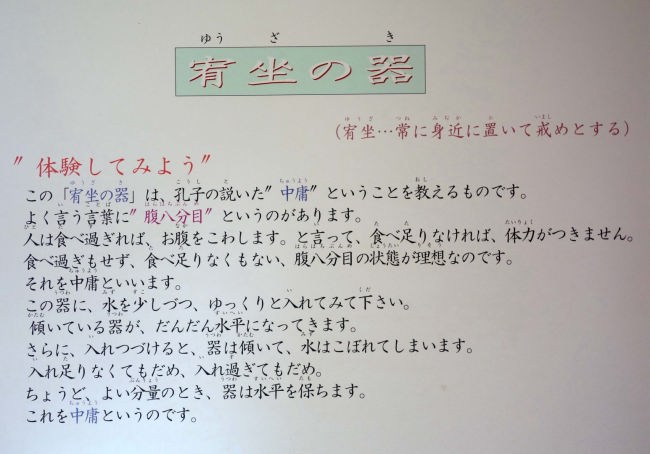 宥坐の器
(宥坐…常に身近に置いて戒めとする)
"体験してみよう"
この「宥坐の器」は、孔子の説いた"中庸"ということを教えるものです。
よく言う言葉に"腹八分目"というのがあります。
人は食べ過ぎれば、お腹をこわします。と言って、食べ足りなければ、体力がつきません。
食べ過ぎもせず、食べ足りなくもない、腹八分目の状態が理想なのです。
それを中庸といいます。
この器に、水を少しづつ、ゆっくりと入れてみて下さい。
傾いている器が、だんだん水平になってきます。
さらに、入れつづけると、器は傾いて、水はこぼれてしまいます。
入れ足りなくてもだめ、入れ過ぎてもだめ。
ちょうど、よい分量のとき、器は水平を保ちます。
これを中庸というのです。